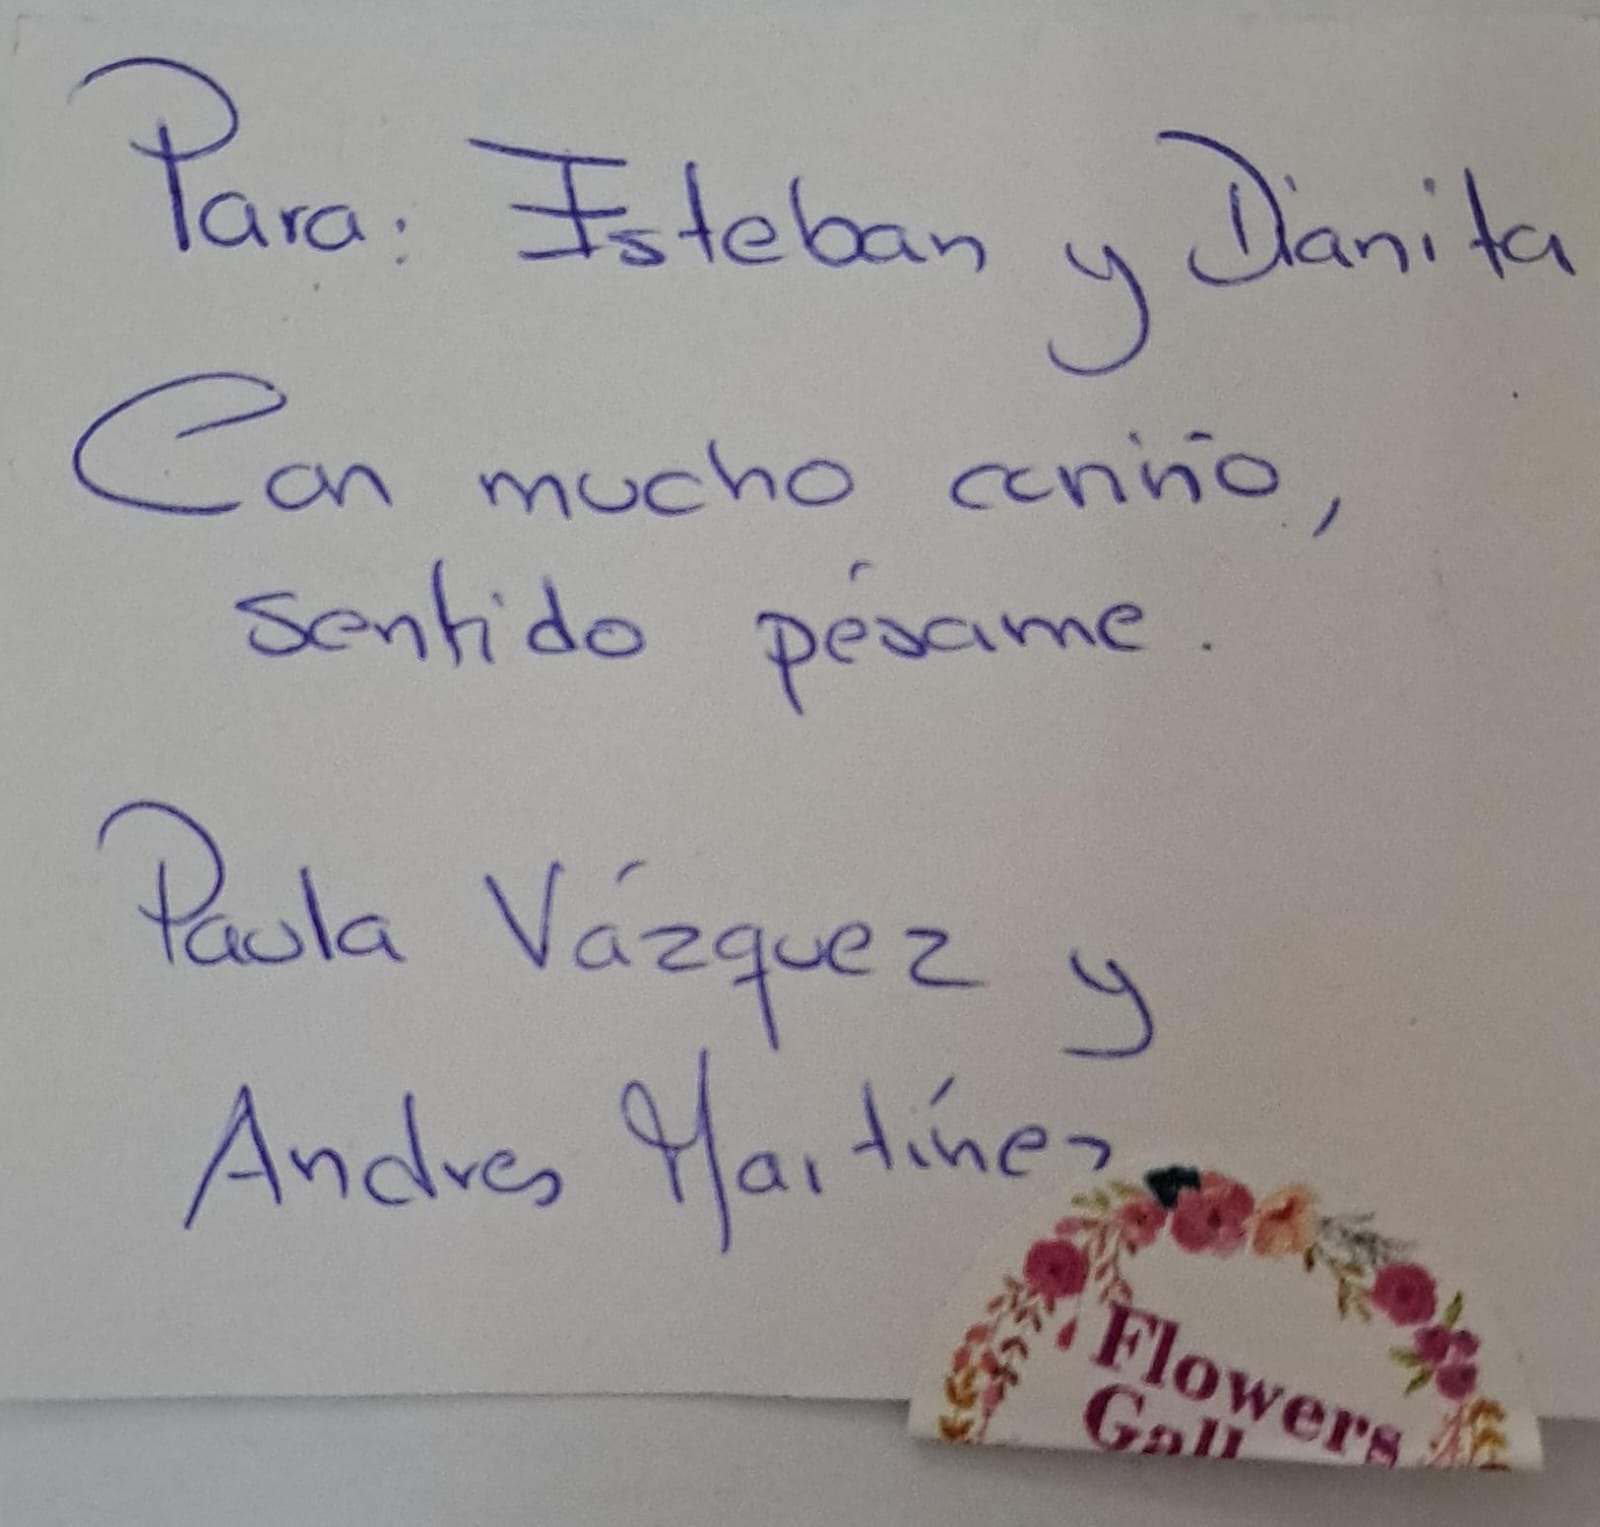 Para: Esteban y Dianita
Con mucho cariño,
sentido pésame.
Paula Vázquez y
Andres Martínez
Flowers
Gall